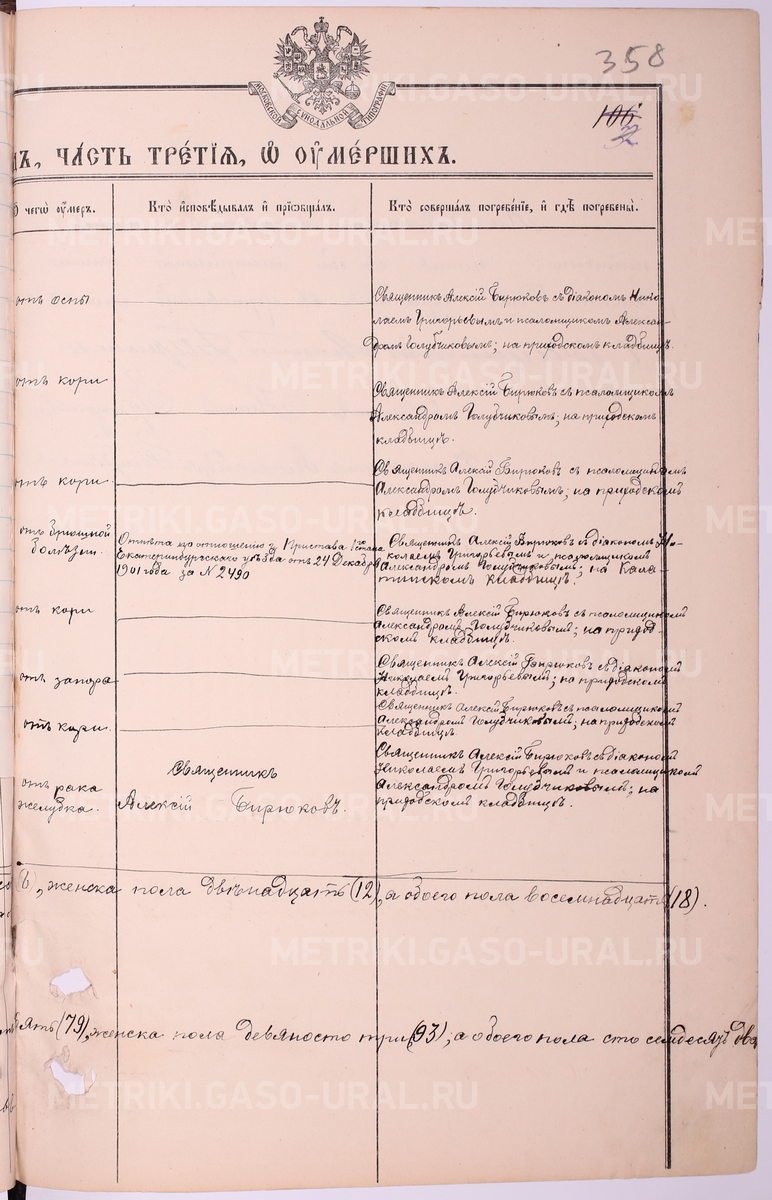 358
106
МОСКОВСКОЙ СѴНОДАЛЬНОЙ ТИПОГРАФІИ
ЧА́СТЬ ТРЕ́ТЇѦ, Ѡ҆ ОУ҆МЕ́РШИХЪ.
чегѡ̀ оу҆мер̾.
Кто̀ и҆сповѣ́дывалъ и҆ прїѡбща́лъ.
Кто̀ соверша́лъ погребе́нїе, и҆ гдѣ̀ погребены̀.
отъ оспы
Священникъ Алексій Бирюковъ съ діакономъ Нико-
лаемъ Григорьевымъ и псаломщикомъ Алексан-
дромъ Голубчиковымъ; на приходскомъ кладбищѣ.
отъ кори
Священникъ Алексій Бирюковъ съ псаломщикомъ
Александромъ Голубчиковымъ; на приходскомъ
кладбищѣ.
отъ кори
Священникъ Алексій Бирюковъ съ псаломщикомъ
Александромъ Голубчиковымъ; на приходскомъ
кладбищѣ.
отъ брюшной
болѣзни.
Отпѣта по отношенію г. Пристава 1го стана
Екатеринбургскаго уѣзда отъ 24 Декабря
1901 года за N 2490
Священникъ Алексій Бирюковъ съ діакономъ Ни-
колаемъ Григорьевымъ и псаломщикомъ
Александромъ Голубчиковымъ; на Кала-
тинскомъ кладбищѣ.
отъ кори
Священникъ Алексій Бирюковъ съ псаломщикомъ
Александромъ Голубчиковымъ; на приход-
скомъ кладбищѣ.
отъ запора
Священникъ Алексій Бирюковъ съ діакономъ
Николаемъ Григорьевымъ; на приходскомъ
кладбищѣ.
отъ кори.
Священникъ Алексій Бирюковъ съ псаломщикомъ
Александромъ Голубчиковымъ; на приходскомъ
кладбищѣ.
отъ рака
желудка.
Священникъ
Алексій Бирюковъ.
Священникъ Алексій Бирюковъ съ діакономъ
Николаемъ Григорьевымъ и псаломщикомъ
Александромъ Голубчиковымъ; на
приходскомъ кладбищѣ.
женска пола двѣнадцать (12), а обоего пола восемнадцать (18).
(79), женска пола девяносто три (93); а обоего пола сто семдесятъ два
METRIKI.GASO-URAL.RU